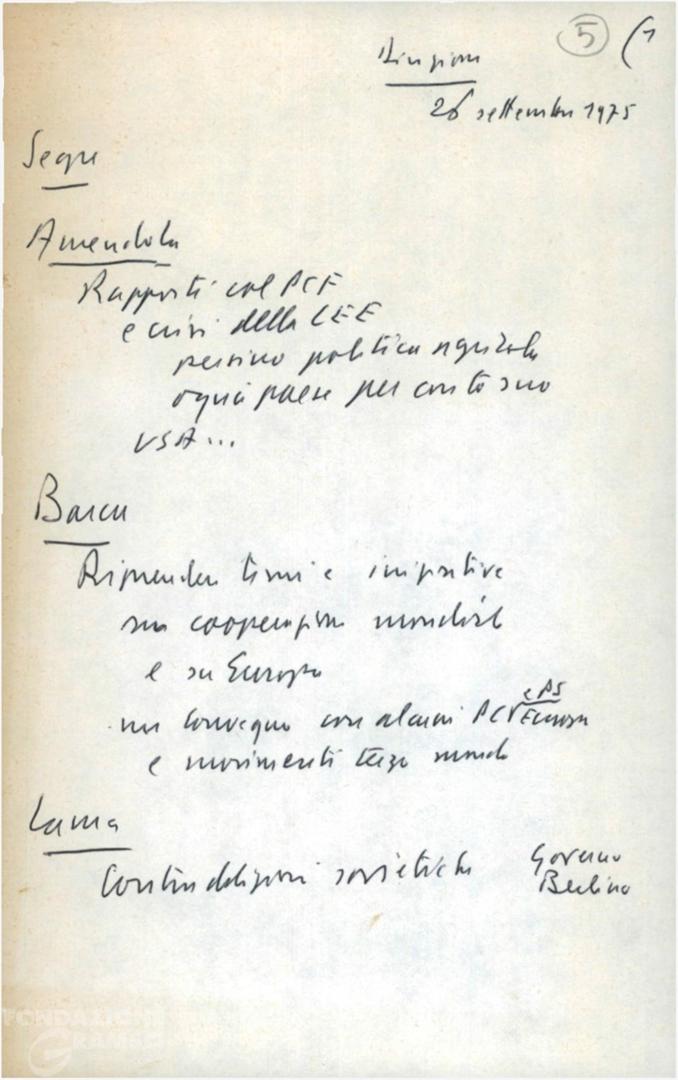 5 (1
Direzione
26 settembre 1975
Segre
Amendola
Rapporti col PCF
e crisi della CEE
persino politica agricola
ogni paese per conto suo
USA...
Barca
Riprendere temi e iniziative
su cooperazione mondiale
e su Europa
un convegno con alcuni PC e PS Europa
e movimenti terzo mondo
Lama
Contraddizioni sovietiche
Governo
Berlino
FONDAZIONE
GRAMSCI